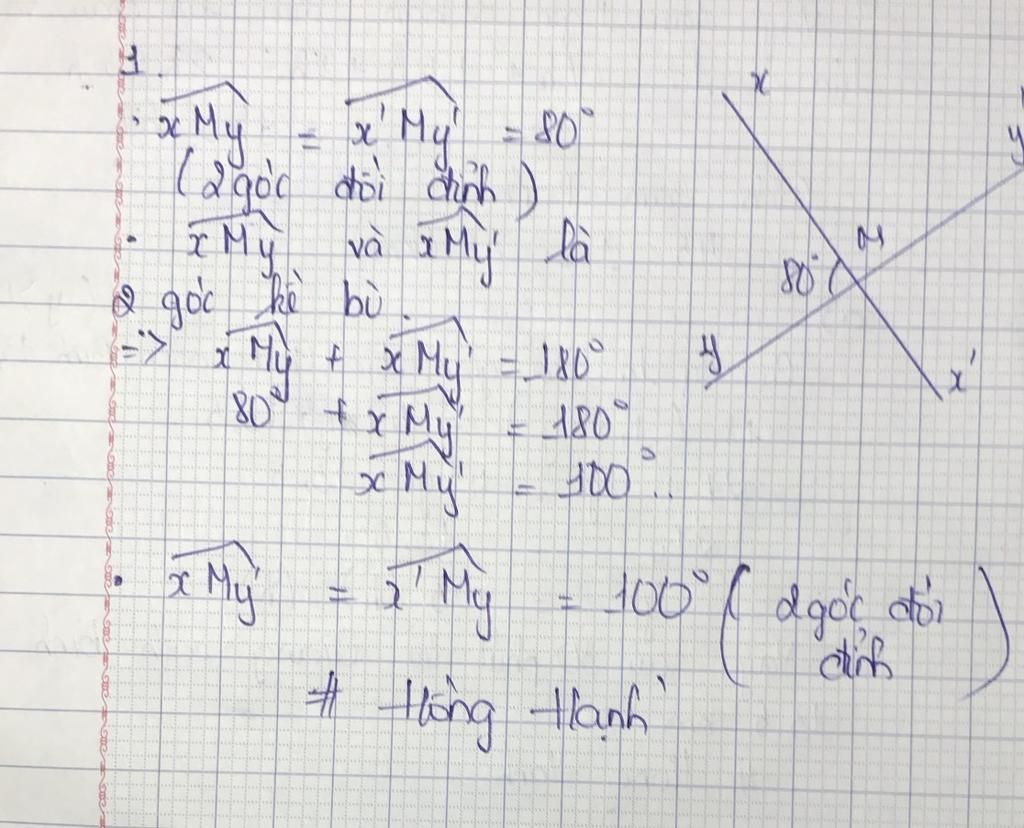 1.
. xMy = x'My' = 80°
(2 góc đối đỉnh)
. xMy và xMy' là
2 góc kề bù.
=> xMy + xMy' = 180°
80° + xMy' = 180°
xMy' = 100°..
. xMy' = x'My = 100° (2 góc đối
đỉnh)
# Hồng Hạnh
x
y'
M
80°
y
x'